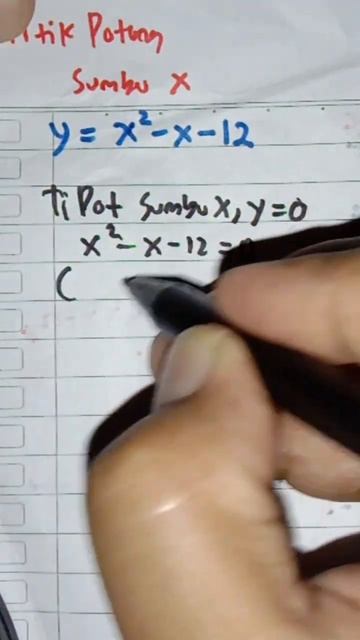 Titik Potong
Sumbu X
y = x² - x - 12
Ti Pot Sumbu X, y = 0
x² - x - 12 =
(